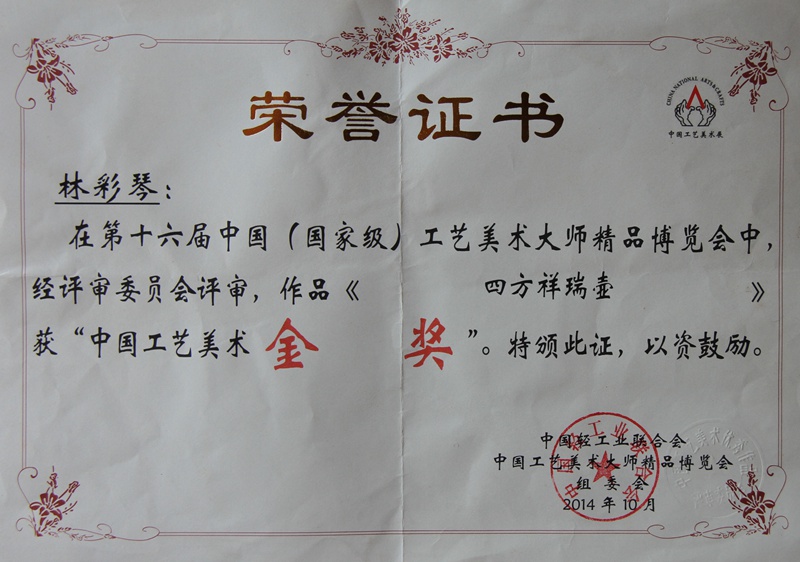 荣誉证书
CHINA NATIONAL ARTS&CRAFTS
中国工艺美术展
林彩琴：
在第十六届中国（国家级）工艺美术大师精品博览会中，
经评审委员会评审，作品《 四方祥瑞壶 》
获“中国工艺美术 金 奖 ”。特颁此证，以资鼓励。
中国轻工业联合会
中国工艺美术大师精品博览会
组委会
2014 年 10 月
中国轻工业联合会